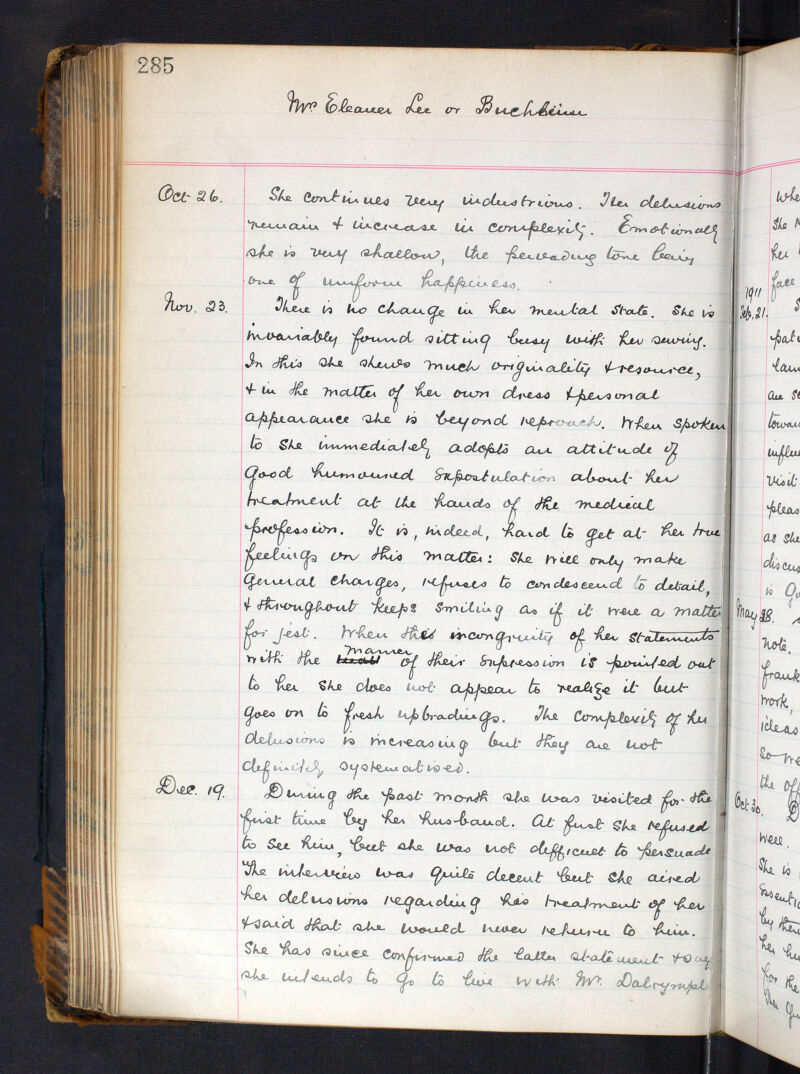 285
Mrs Eleanor Lee or Buchheim
Oct 26. She continues very industrious. Her delusions
remain & increase in complexity. Emotionally
she is very shallow, the pervading tone being
one of uniform happiness.
Nov. 23. There is no change in her mental state. She is
invariably found sitting busy with her sewing.
In this she shews much originality & resource,
& in the matter of her own dress & personal
appearance she is beyond reproach. When spoken
to she immediately adopts an attitude of
good humoured expostulation about her
treatment at the hands of the medical
profession. It is, indeed, hard to get at her true
feelings on this matter: She will only make
general charges, refuses to condescend to detail,
& throughout keeps smiling as if it were a matter
for jest. When the incongruity of her statements
with the manner of their expression is pointed out
to her she does not appear to realize it but
goes on to fresh upbraidings. The complexity of her
delusions is increasing but they are not
definitely systematised.
Dec. 19. During the past month she was visited for the
first time by her husband. At first she refused
to see him, but she was not difficult to persuade
The interview was quite decent but she aired
her delusions regarding his treatment of her
& said that she would never return to him.
She has since confirmed the latter statement & says
she intends to go to live with Mr. Dalrympl
whe
she
her
face
1911
Feb. 21.
pati
lam
are
towar
influe
visit
pleas
as she
discus
is
May 28.
note.
frank
work,
ideas
so
the off
Oct 30.
well.
She is
essenti
by
her hu
for the